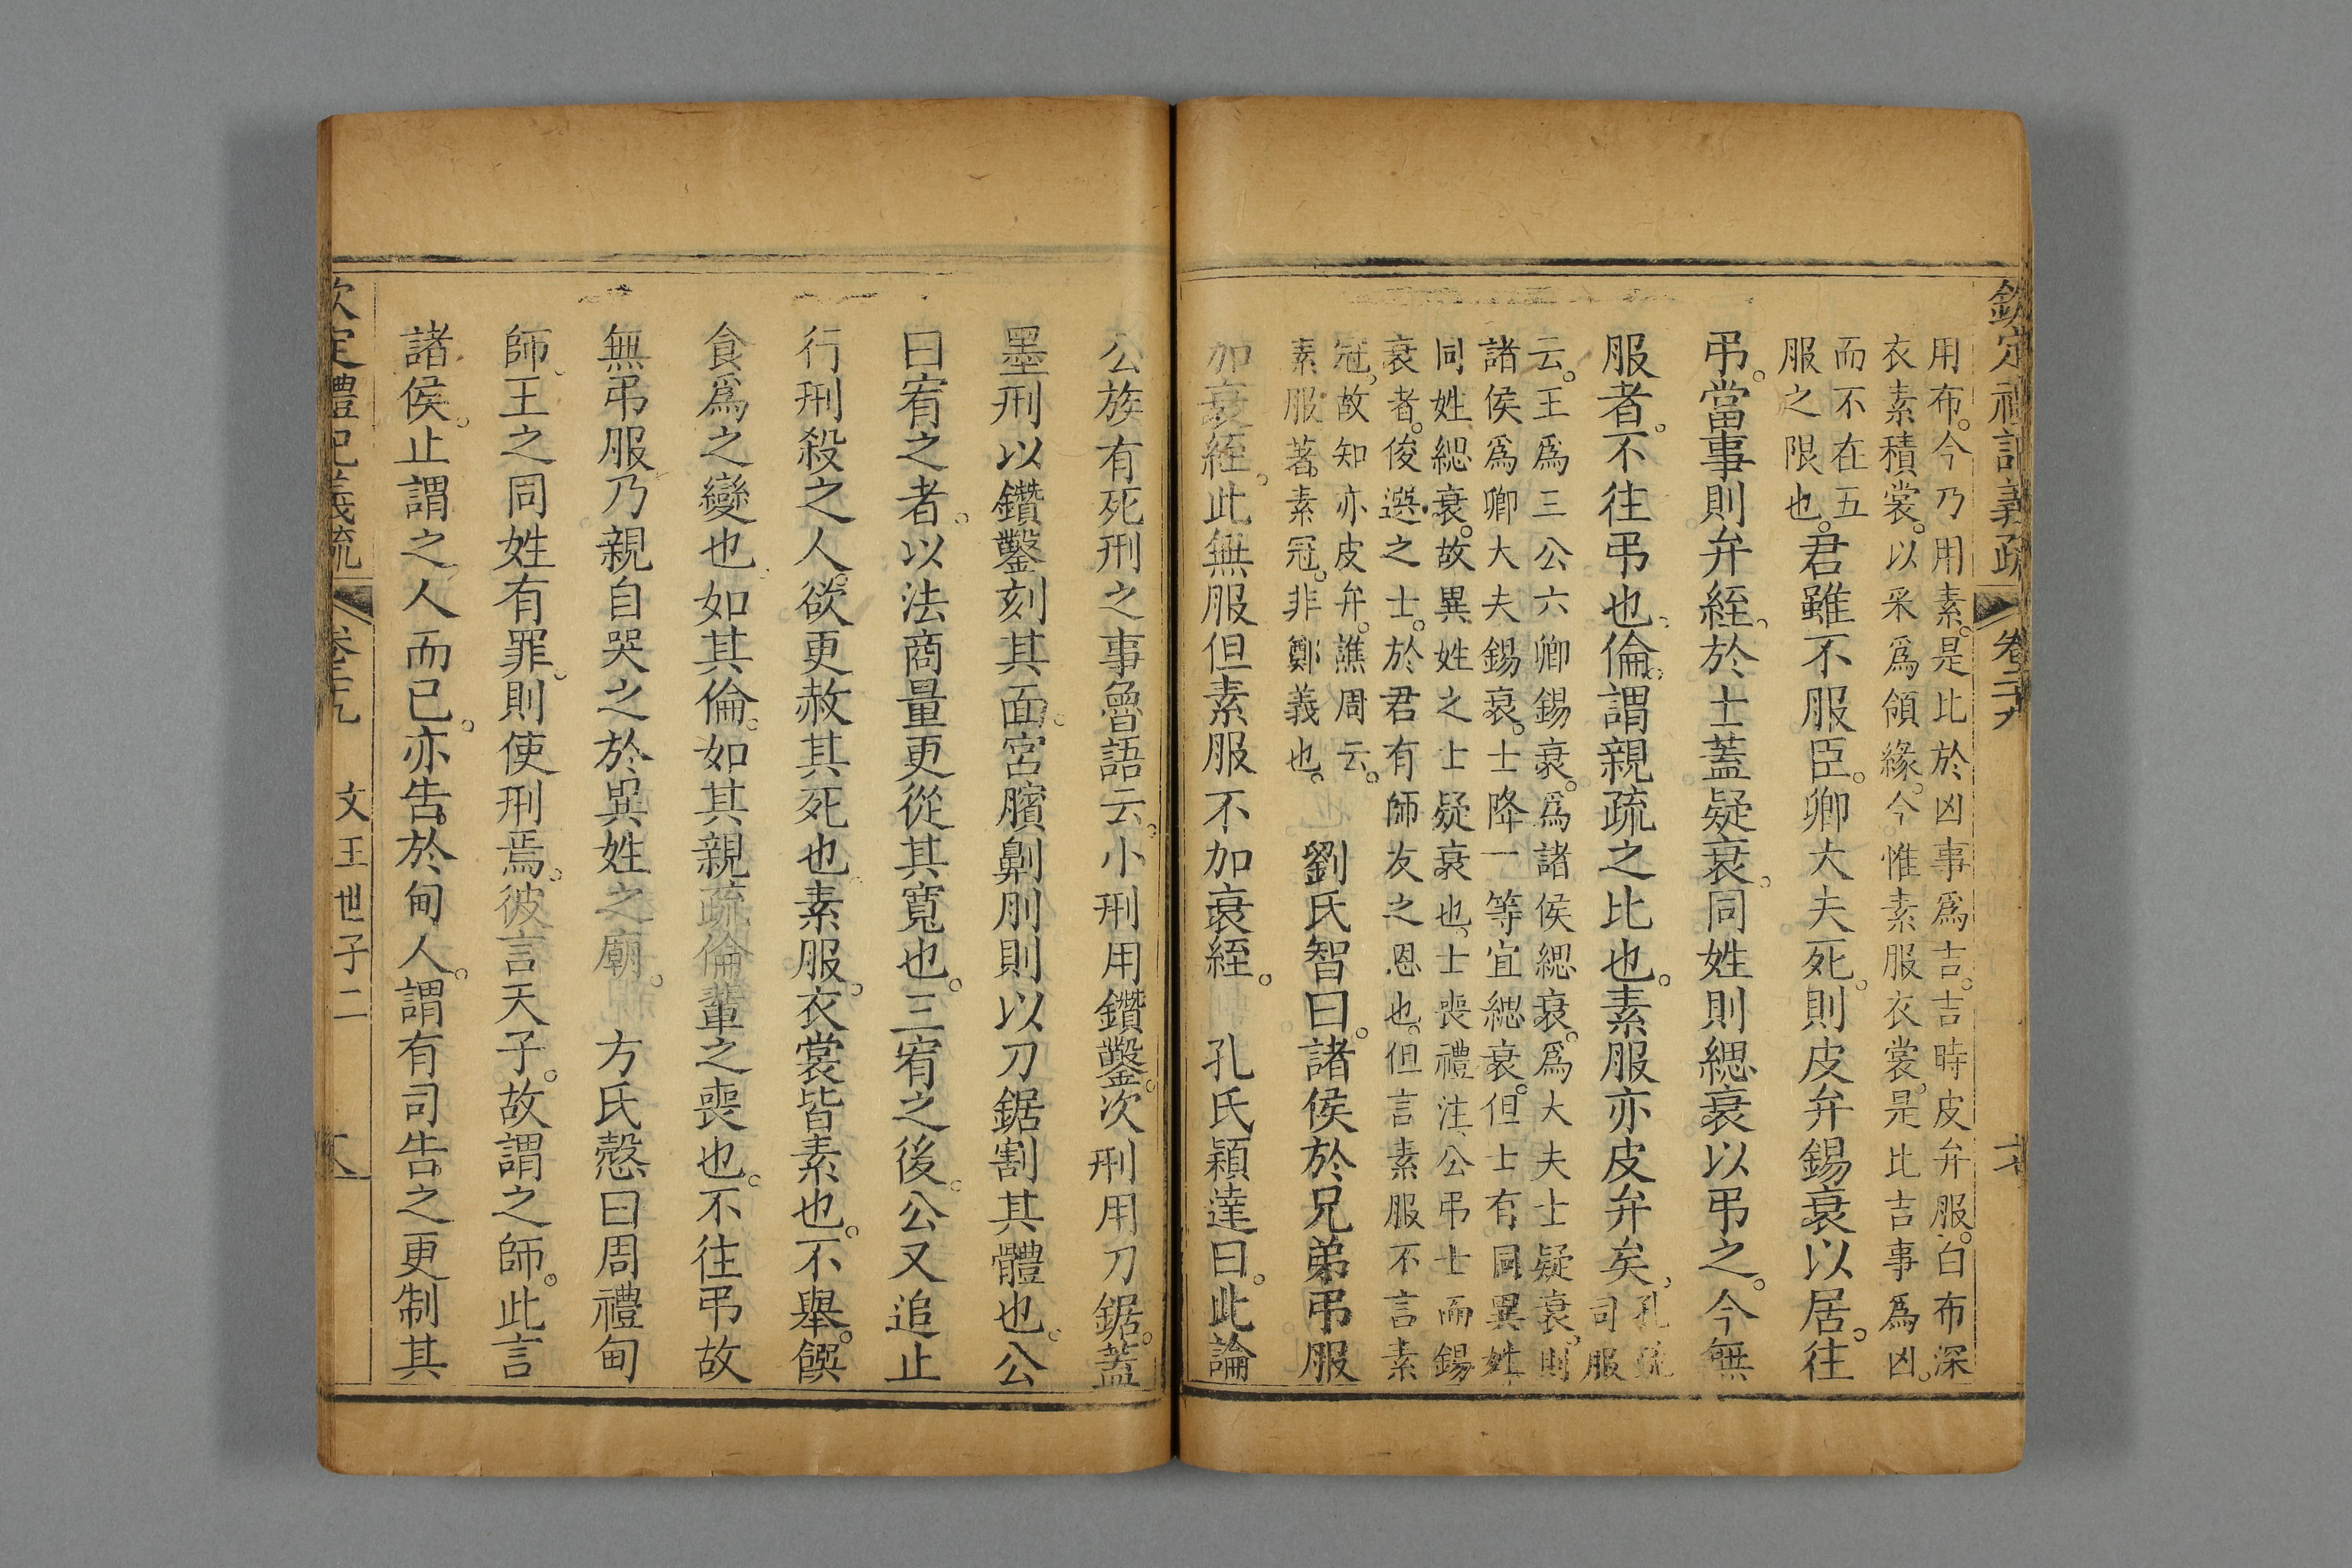 欽定禮記義疏 卷二十九
用布。今乃用素。是比於凶事爲吉。吉時皮弁服。白布深
衣素積裳。以采爲領緣。今惟素服衣裳。是比吉事爲凶。
而不在五
服之限也。君雖不服臣。卿大夫死。則皮弁錫衰以居。往
弔。當事則弁絰。於士蓋疑衰。同姓則緦衰以弔之。今無
服者。不往弔也。倫。謂親疏之比也。素服亦皮弁矣。孔疏
司服
云。王爲三公六卿錫衰。爲諸侯緦衰。爲大夫士疑衰。則
諸侯爲卿大夫錫衰。士降一等宜緦衰。但士有同異姓
同姓緦衰。故異姓之士疑衰也。士喪禮注、公弔士而錫
衰者。俊選之士。於君有師友之恩也。但言素服不言素
冠。故知亦皮弁。譙周云。
素服著素冠。非鄭義也。 劉氏智曰。諸侯於兄弟弔服
加衰絰。此無服但素服不加衰絰。 孔氏穎達曰。此論
公族有死刑之事魯語云。小刑用鑽鑿。次刑用刀鋸。蓋
墨刑以鑽鑿刻其面。宮臏劓刖則以刀鋸割其體也。公
曰宥之者。以法商量更從其寬也。三宥之後。公又追止
行刑殺之人。欲更赦其死也素服。衣裳皆素也。不舉。饌
食爲之變也如其倫。如其親疏倫輩之喪也。不往弔故
無弔服乃親自哭之於異姓之廟。 方氏慤曰周禮甸
師。王之同姓有罪。則使刑焉。彼言天子。故謂之師。此言
諸侯。止謂之人而已。亦告於甸人。謂有司告之更制其
欽定禮記義疏 文王世子二